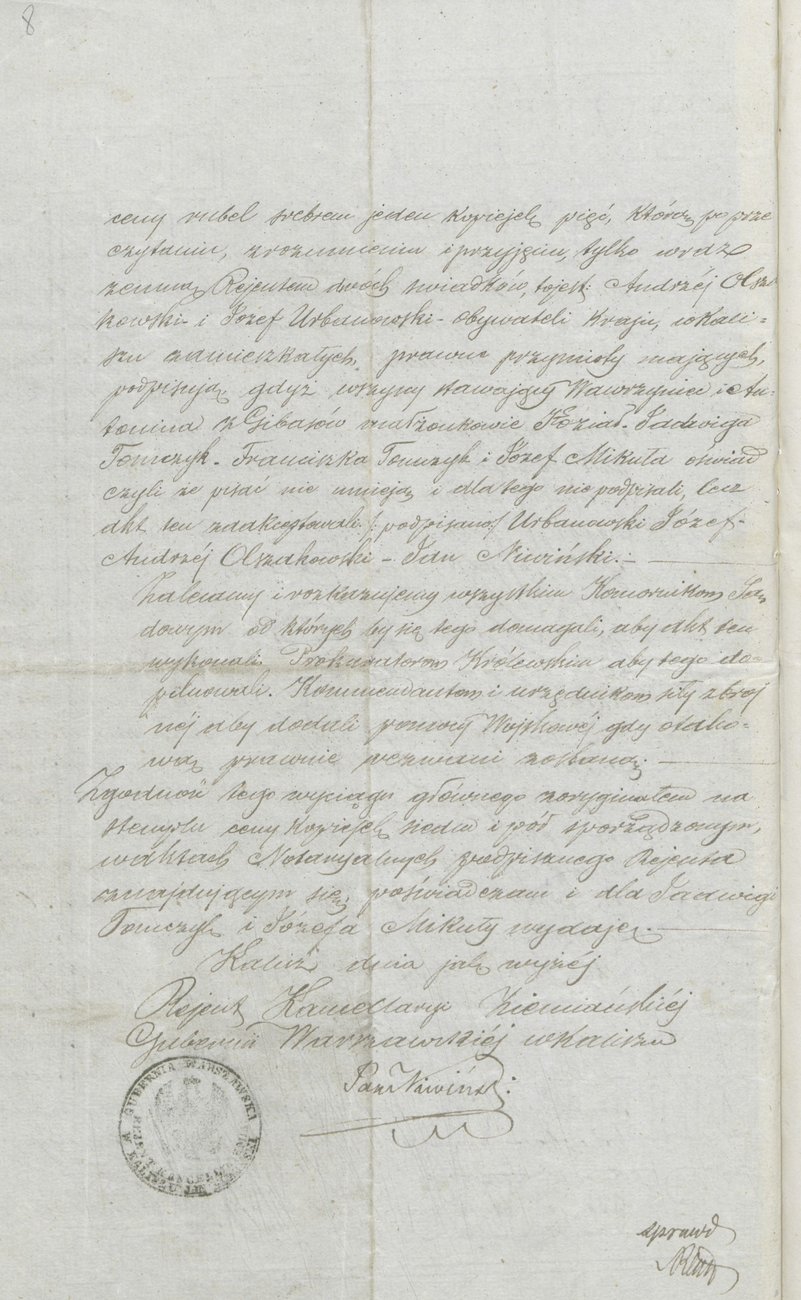 8
ceny rubel srebrem jeden kopiejek pięć, którzy po prze
czytaniu, zrozumieniu i przyjęciu, tylko wraz
zemną Rejentem dwóch swiadków, tojest: Andrzéj Olsza
kowski i Józef Urbanowski - obywateli kraju, w Kali-
szu zamieszkałych, prawne przymioty mających,
podpisują, gdyż wszyscy stawający Wawrzyniec i An-
tonina z Gibasów małżonkowie Kozial. Jadwiga
Tomczyk. Franciszka Tomczyk i Józef Mikuła oświad
czyli że pisać nie umieją i dla tego nie podpisali, lecz
akt ten zaakceptowali. /: podpisano/ Urbanowski Józef -
Andrzéj Olszakowski - Jan Niwiński. -
Zalecamy i rozkazujemy wszystkim Komornikom Są
dowym od których by się tego domagali, aby akt ten
wykonali. Prokuratorom Królewskim aby tego do-
pilnowali. Kommendantom i urzędnikom siły zbroj
néj aby dodali pomocy Wojskowéj gdy o tako-
wą prawnie wezwani zostaną. -
Zgodność tego wyciągu głównego z oryginałem na
stemplu ceny kopiejek siedm i pół sporządzonym,
w aktach Notaryalnych podpisanego Rejenta
znajdującym się, poświadczam i dla Jadwigi
Tomczyk i Józefa Mikuły wydaję. -
Kalisz dnia jak wyżéj
Rejent Kancellaryi Ziemiańskiéj
Gubernii Warszawskiéj w Kaliszu
Jan Niwiński
GUBERNIA WARSZAWSKA
sprawd